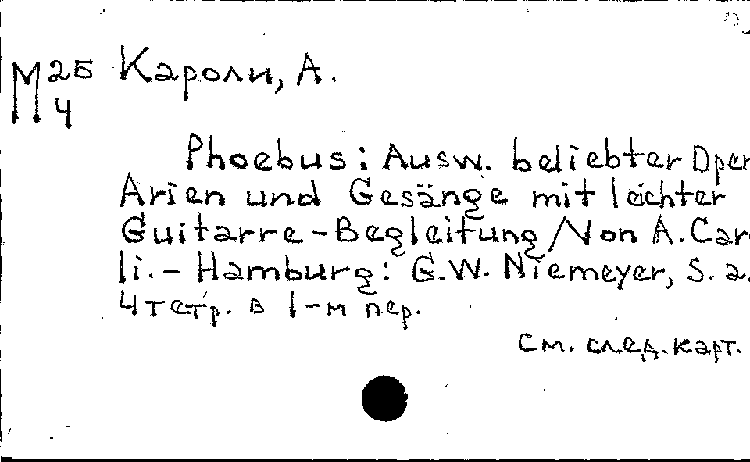 М 25 Кароли, А.
4
Phoebus: Ausw. beliebter Oper
Arien und Gesänge mit leichter
Guitarre-Begleitung/Von A. Car
li.- Hamburg: G.W. Niemeyer, S. a.
4 тетр. в 1-м пер.
См. след. карт.